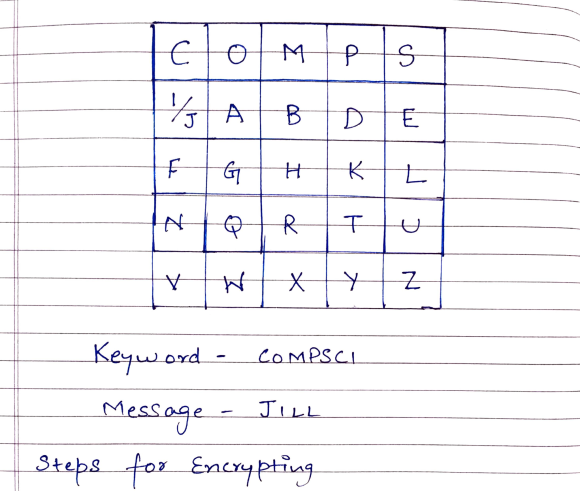 C O M P S
I/J A B D E
F G H K L
N Q R T U
V W X Y Z
Keyword - COMPSCI
Message - JILL
Steps for Encrypting